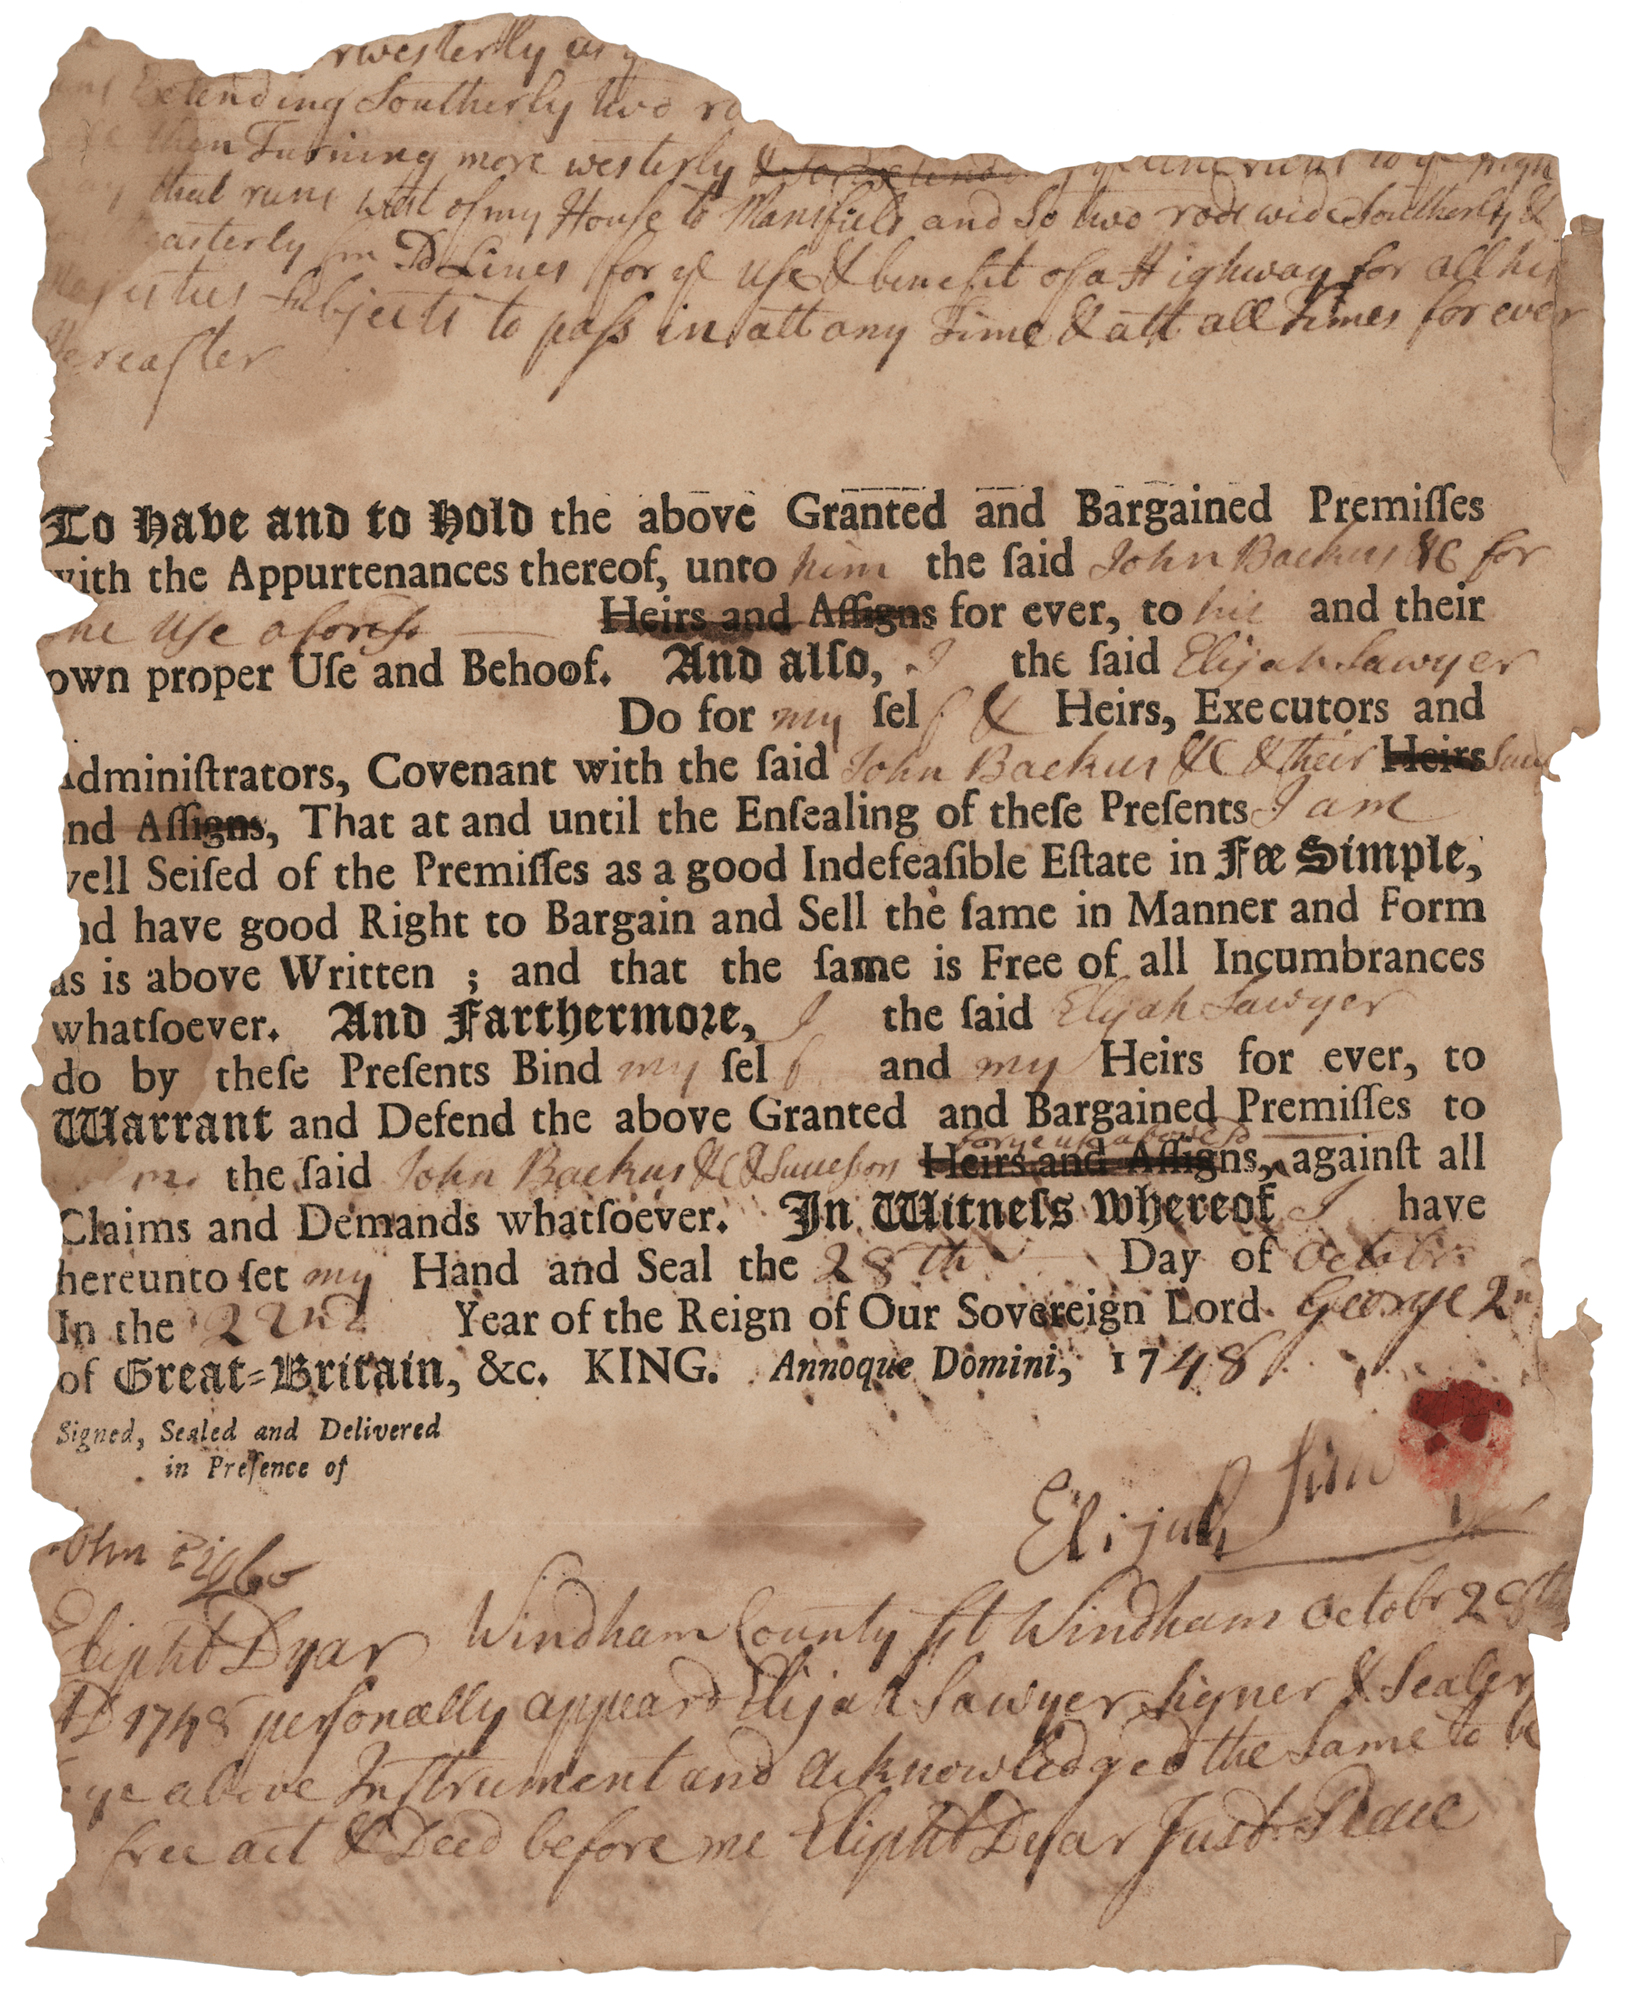 westerly as y
Extending Southerly two ro
then Turning more westerly & so Extending
that runs west of my House to Mansfield and So two rods wide Southerly &
easterly Sd Lines for ye Use & benefit of a Highway for all his
Majesties Subjects to paſs in att any Time & att all Times for ever
hereafter
To Have and to Hold the above Granted and Bargained Premiſſes
with the Appurtenances thereof, unto him the ſaid John Backus &C for
the Use aforesd Heirs and Aſſigns for ever, to his and their
own proper Uſe and Behoof. And alſo, I the ſaid Elijah Sawyer
Do for my ſelf & Heirs, Executors and
Adminiſtrators, Covenant with the ſaid John Backus &C & their Heirs
and Aſſigns, That at and until the Enſealing of theſe Preſents I am
well Seiſed of the Premiſſes as a good Indefeaſible Eſtate in Fee Simple,
and have good Right to Bargain and Sell the ſame in Manner and Form
as is above Written ; and that the ſame is Free of all Incumbrances
whatſoever. And Farthermore, I the ſaid Elijah Sawyer
do by theſe Preſents Bind my ſelf and my Heirs for ever, to
Warrant and Defend the above Granted and Bargained Premiſſes to
for ye use abovesd
the ſaid John Backus &C & Succeſsors Heirs and Aſſigns, against all
Claims and Demands whatſoever. In Witneſs whereof I have
hereunto ſet my Hand and Seal the 28th Day of Octobr
In the 22nd Year of the Reign of Our Sovereign Lord George 2nd
of Great=Britain, &c. KING. Annoque Domini, 1748.
Signed, Sealed and Delivered
in Preſence of
Elijah
John
Elipht Dyar Windham County ſst Windham Octobr 28th
AD 1748 perſonally appeard Elijah Sawyer Signer & Sealer
ye above Inſtrument and Acknowledged the Same to be
free act & Deed before me Elipht Dyar Just Peace